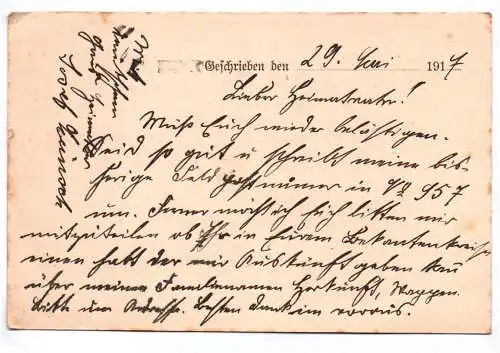 Geschrieben den 29. Mai 1917
Lieber Heimatvater!
Muss Euch wieder belästigen.
Seid so gut u schreibt meine bis-
herige Feldpostnummer in No 957
um. Ferner möcht ich Euch bitten mir
mitzuteilen ob Ihr in Eurem Bekantenkreise
einen habt der mir Auskunft geben kan
über meinen Familiennamen Herkunft, Wappen.
Bitte um Adresse. Besten Dank im voraus.
Mit
Josef